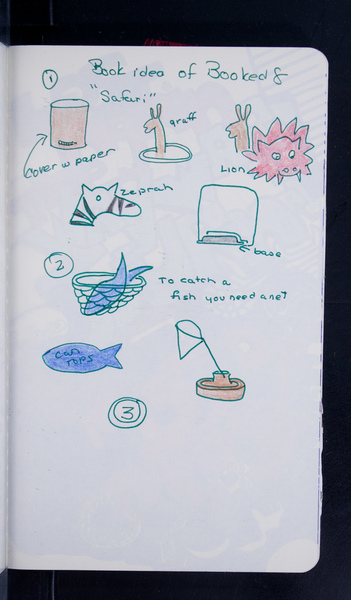 Book idea of Booked 8
①
"Safari"
graff
Cover w paper
Lion
Zeprah
base
②
To catch a
fish you need a net
can
tops
③